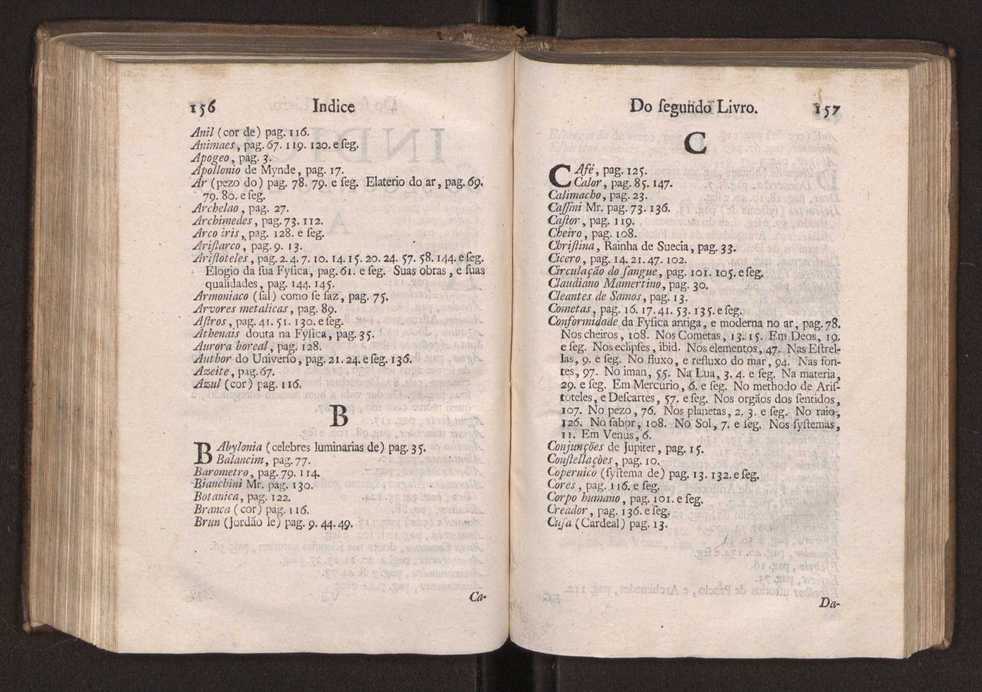 156 Indice
Anil (cor de) pag. 116.
Animaes, pag. 67. 119. 120. e ſeg.
Apogeo, pag. 3.
Apollonio de Mynde, pag. 17.
Ar (pezo do) pag. 78. 79. e ſeg. Elaterio do ar, pag. 69.
79. 80. e ſeg.
Archelao, pag. 27.
Archimedes, pag. 73. 112.
Arco iris, pag. 128. e ſeg.
Ariſtarco, pag. 9. 13.
Ariſtoteles, pag. 2. 4. 7. 10. 14. 15. 20. 24. 57. 58. 144. e ſeg.
Elogio da ſua Fyſica, pag. 61. e ſeg. Suas obras, e ſuas
qualidades, pag. 144. 145.
Armoniaco (ſal) como ſe faz, pag. 75.
Arvores metalicas, pag. 89.
Aſtros, pag. 41. 51. 130. e ſeg.
Athenais douta na Fyſica, pag. 35.
Aurora boreal, pag. 128.
Author do Univerſo, pag. 21. 24. e ſeg. 136.
Azeite, pag. 67.
Azul (cor) pag. 116.
B
BAbylonia (celebres luminarias de) pag. 35.
Balancim, pag. 77.
Barometro, pag. 79. 114.
Bianchini Mr. pag. 130.
Botanica, pag. 122.
Branca (cor) pag. 116.
Brun (Jordão le) pag. 9. 44. 49.
Ca-
Do ſegundo Livro. 157
C
CAfé, pag. 125.
Calor, pag. 85. 147.
Calimacho, pag. 23.
Caſſini Mr. pag. 73. 136.
Caſtor, pag. 119.
Cheiro, pag. 108.
Chriſtina, Rainha de Suecia, pag. 33.
Cicero, pag. 14. 21. 47. 102.
Circulação do ſangue, pag. 101. 105. e ſeg.
Claudiano Mamertino, pag. 30.
Cleantes de Samos, pag. 13.
Cometas, pag. 16. 17. 41. 53. 135. e ſeg.
Conformidade da Fyſica antiga, e moderna no ar, pag. 78.
Nos cheiros, 108. Nos Cometas, 13. 15. Em Deos, 19.
e ſeg. Nos eclipſes, ibid. Nos elementos, 47. Nas Eſtrel-
las, 9. e ſeg. No fluxo, e refluxo do mar, 94. Nas fon-
tes, 97. No iman, 55. Na Lua, 3. 4. e ſeg. Na materia,
29. e ſeg. Em Mercurio, 6. e ſeg. No methodo de Ariſ-
toteles, e Deſcartes, 57. e ſeg. Nos orgãos dos ſentidos,
107. No pezo, 76. Nos planetas, 2. 3. e ſeg. No raio,
126. No ſabor, 108. No Sol, 7. e ſeg. Nos ſyſtemas,
11. Em Venus, 6.
Conjunções de Jupiter, pag. 15.
Conſtellações, pag. 10.
Copernico (ſyſtema de) pag. 13. 132. e ſeg.
Cores, pag. 116. e ſeg.
Corpo humano, pag. 101. e ſeg.
Creador, pag. 136. e ſeg.
Cuſa (Cardeal) pag. 13.
Da-